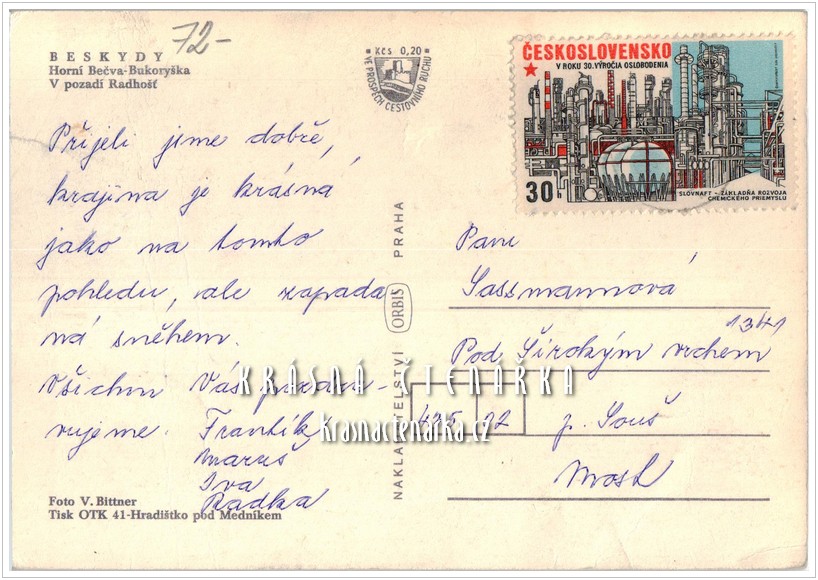 BESKYDY
Horní Bečva-Bukoryška
V pozadí Radhošť
72-
Kčs 0,20
VE PROSPĚCH CESTOVNÍHO RUCHU
ČESKOSLOVENSKO
V ROKU 30. VÝROČIA OSLOBODENIA
30 h
SLOVNAFT - ZÁKLADŇA ROZVOJA
CHEMICKÉHO PRIEMYSLU
Přijeli jsme dobře,
krajina je krásná
jako na tomto
pohledu, ale zapada
ná sněhem.
Všichni Vás pozdra-
vujeme. Frantík
Maruš
Iva
Radka
Foto V. Bittner
Tisk OTK 41-Hradištko pod Medníkem
NAKLADATELSTVÍ ORBIS PRAHA
Paní
Sassmannová
1341
Pod Širokým vrchem
435 22
p. Souš
Most
KRÁSNÁ ČTENÁŘKA
krasnactenarka.cz